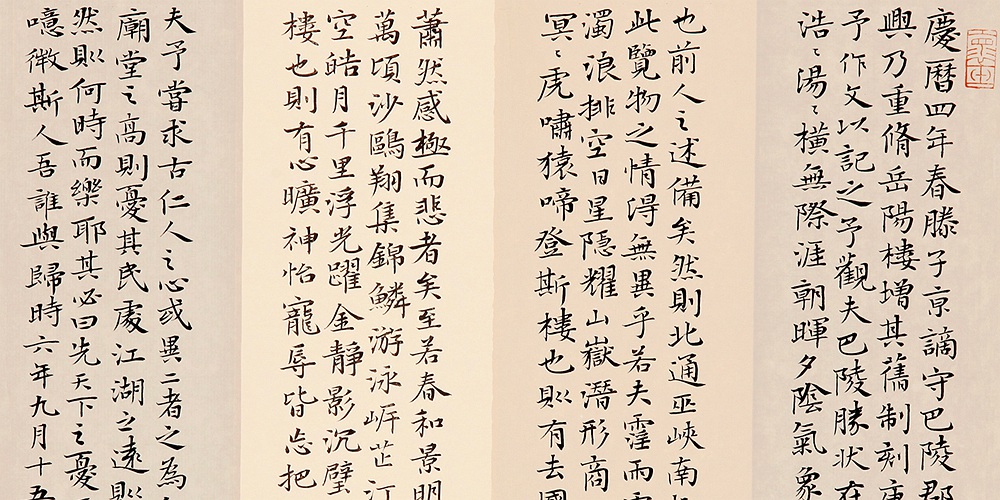 慶曆四年春滕子京謫守巴陵郡
興乃重脩岳陽樓增其舊制刻唐
予作文以記之予觀夫巴陵勝狀在
浩〻湯〻橫無際涯朝暉夕陰氣象
也前人之述備矣然則北通巫峽南
此覽物之情得無異乎若夫霪雨霏
濁浪排空日星隱耀山嶽潛形商
冥〻虎嘯猿啼登斯樓也則有去國
蕭然感極而悲者矣至若春和景明
萬頃沙鷗翔集錦鱗游泳岸芷汀
空皓月千里浮光躍金靜影沉璧
樓也則有心曠神怡寵辱皆忘把
夫予嘗求古仁人之心或異二者之為
廟堂之高則憂其民處江湖之遠則
然則何時而樂耶其必曰先天下之憂
噫微斯人吾誰與歸時六年九月十五